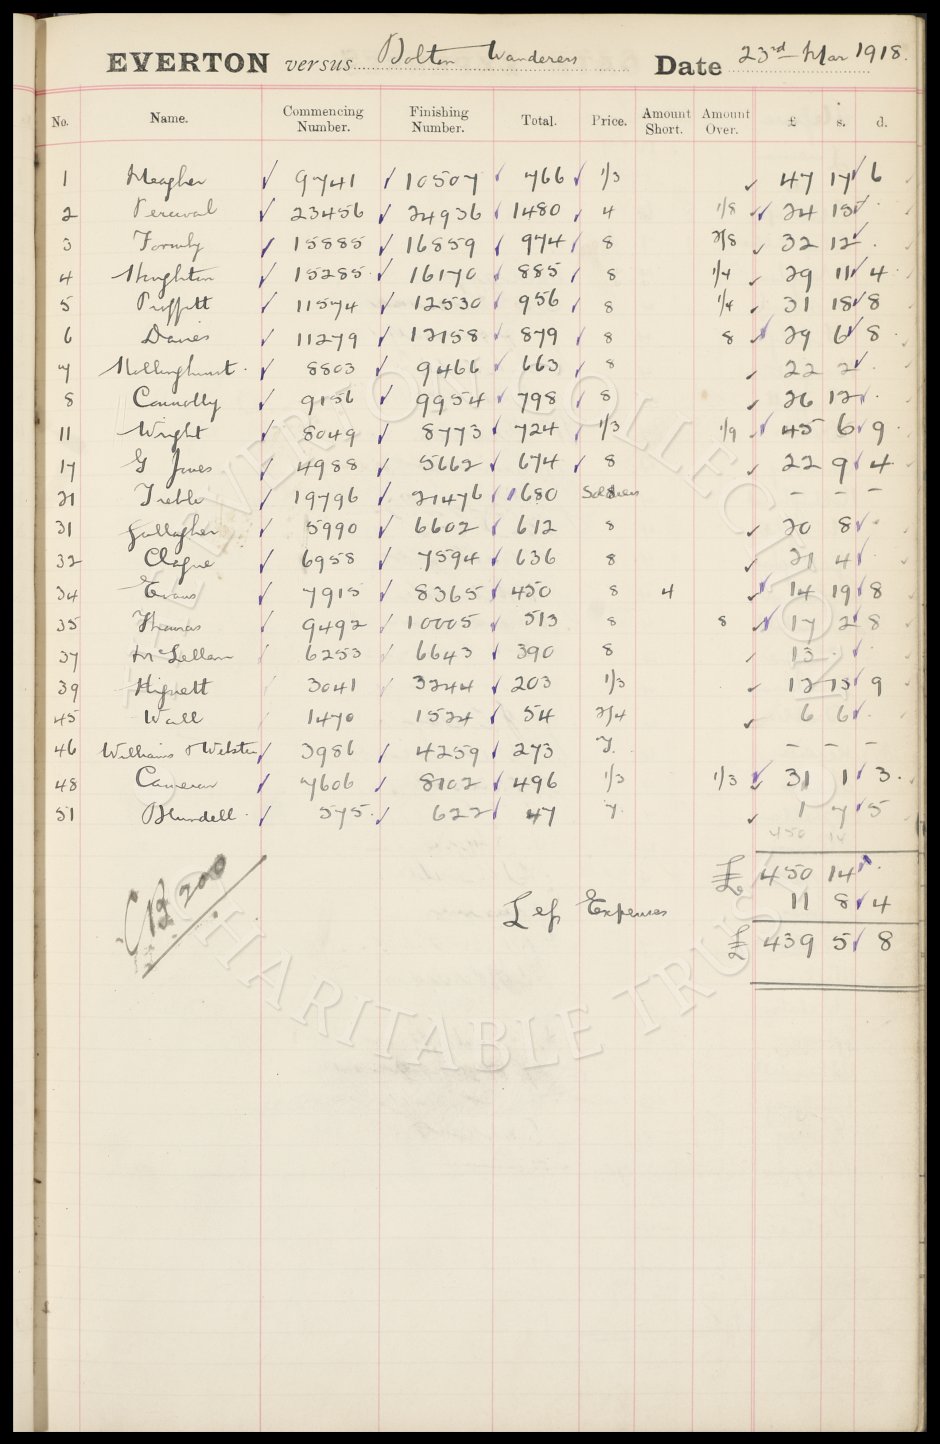 EVERTON versus Bolton Wanderers Date 23rd Mar 1918.
No. Name. Commencing Number. Finishing Number. Total. Price. Amount Short. Amount Over. £ s. d.
1 Meagher 9741 10507 766 1/3 47 17 6
2 Percival 23456 24936 1480 4 1/8 24 15 .
3 Formby 15885 16859 974 8 2/8 32 12 .
4 Houghton 15285 16170 885 8 1/4 29 11 4
5 Proffitt 11574 12530 956 8 1/4 31 18 8
6 Davies 11279 12158 879 8 8 29 6 8
7 Hollinghurst 8803 9466 663 8 22 2 .
8 Connolly 9156 9954 798 8 26 12 .
11 Wright 8049 8773 724 1/3 1/9 45 6 9
17 G Jones 4988 5662 674 8 22 9 4
21 Treble 19796 21476 1680 Soldiers - - -
31 Gallagher 5990 6602 612 8 20 8 .
32 Clague 6958 7594 636 8 21 4
34 Evans 7915 8365 450 8 4 14 19 8
35 Thomas 9492 10005 513 8 8 17 2 8
37 McLellan 6253 6643 390 8 13 . .
39 Hignett 3041 3244 203 1/3 12 13 9
45 Wall 1470 1524 54 2/4 6 6 .
46 Williams & Webster 3986 4259 273 7. - - -
48 Cameron 7606 8102 496 1/3 1/3 31 1 3.
51 Blundell 575 622 47 7 1 7 5
450 14
£ 450 14 .
Less Expenses 11 8 4
£ 439 5 8
200
EVERTON COLLECTION
CHARITABLE TRUST